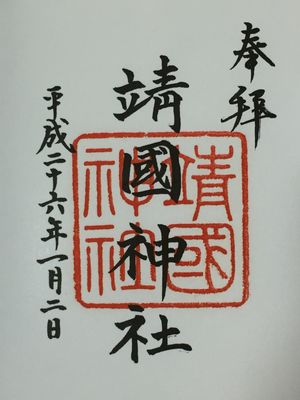 奉拝
靖國神社
靖國神社
平成二十六年一月二日